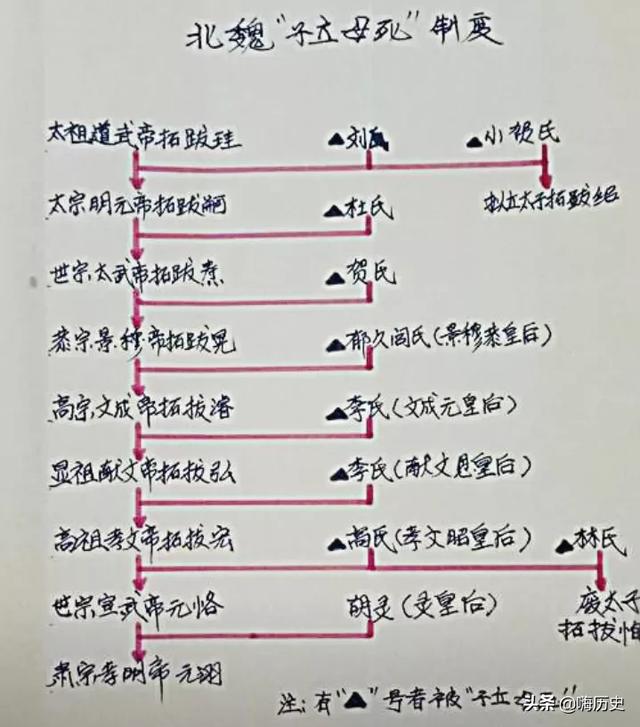 北魏"子立母死"制度
太祖道武帝拓跋珪 ▲刘氏 ▲小贺氏
太宗明元帝拓跋嗣 ▲杜氏 拟立太子拓跋绍
世宗太武帝拓跋焘 ▲贺氏
恭宗景穆帝拓跋晃 ▲郁久闾氏(景穆恭皇后)
高宗文成帝拓拔濬 ▲李氏(文成元皇后)
显祖献文帝拓拔弘 ▲李氏(献文思皇后)
高祖孝文帝拓拔宏 ▲高氏(孝文昭皇后) ▲林氏
世宗宣武帝元恪 胡灵(灵皇后) 废太子
拓拔恂
肃宗孝明帝元诩
注:有"▲"号者被"子立母死"
头条@嗨历史